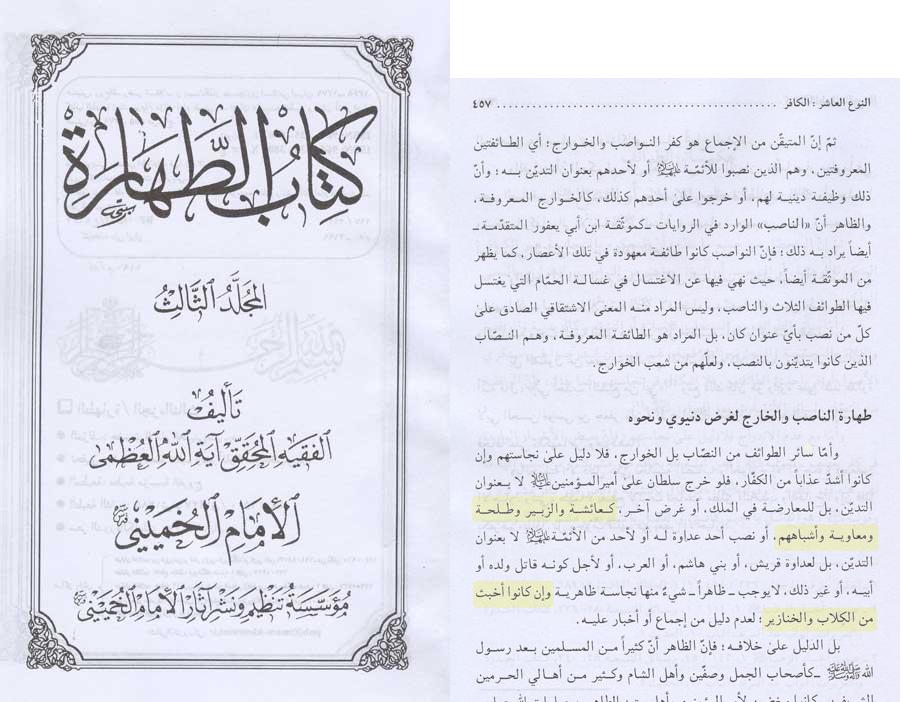 كتاب الطهارة
المجلد الثالث
تأليف
الفقيه المحقق آية الله العظمى
الإمام الخميني
مؤسسة تنظيم ونشر آثار الإمام الخميني
النوع العاشر : الكافر ........................................ ٤٥٧
ثمّ إنّ المتيقّن من الإجماع هو كفر النواصب والخوارج ؛ أي الطائفتين
المعروفتين ، وهم الذين نصبوا للأئمّة عليهم السلام أو لأحدهم بعنوان التديّن بـه ؛ وأنّ
ذلك وظيفة دينية لهم ، أو خرجوا علىٰ أحدهم كذلك ، كالخوارج المعروفة ،
والظاهر أنّ «الناصب» الوارد في الروايات ـ كموثّقة ابن أبي يعفور المتقدّمة ـ
أيضاً يراد به ذلك ؛ فإنّ النواصب كانوا طائفة معهودة في تلك الأعصار ، كما يظهر
من الموثّقة أيضاً ، حيث نهي فيها عن الاغتسال في غسالة الحمّام التي يغتسل
فيها الطوائف الثلاث والناصب ، وليس المراد منه المعنى الاشتقاقي الصادق علىٰ
كلّ من نصب بأيّ عنوان كان ، بل المراد هو الطائفة المعروفة ، وهم النصّاب
الذين كانوا يتديّنون بالنصب ، ولعلّهم من شعب الخوارج .
طهارة الناصب والخارج لغرض دنيوي ونحوه
وأمّا سائر الطوائف من النصّاب بل الخوارج ، فلا دليل علىٰ نجاستهم وإن
كانوا أشدّ عذاباً من الكفّار ، فلو خرج سلطان علىٰ أميرالمؤمنين عليه السلام لا بعنوان
التديّن ، بل للمعارضة في الملك ، أو غرض آخر ، كعائشة والزبير وطلحة
ومعاوية وأشباههم ، أو نصب أحد عداوة له أو لأحد من الأئمّة عليهم السلام لا بعنوان
التديّن ، بل لعداوة قريش ، أو بني هاشم ، أو العرب ، أو لأجل كونه قاتل ولده أو
أبيه ، أو غير ذلك ، لا يوجب ـ ظاهراً ـ شيء منها نجاسة ظاهرية وإن كانوا أخبث
من الكلاب والخنازير ؛ لعدم دليل من إجماع أو أخبار عليه .
بل الدليل علىٰ خلافه ؛ فإنّ الظاهر أنّ كثيراً من المسلمين بعد رسول
الله صلى الله عليه وآله وسلم ـ كأصحاب الجمل وصفّين وأهل الشام وكثير من أهالي الحرمين